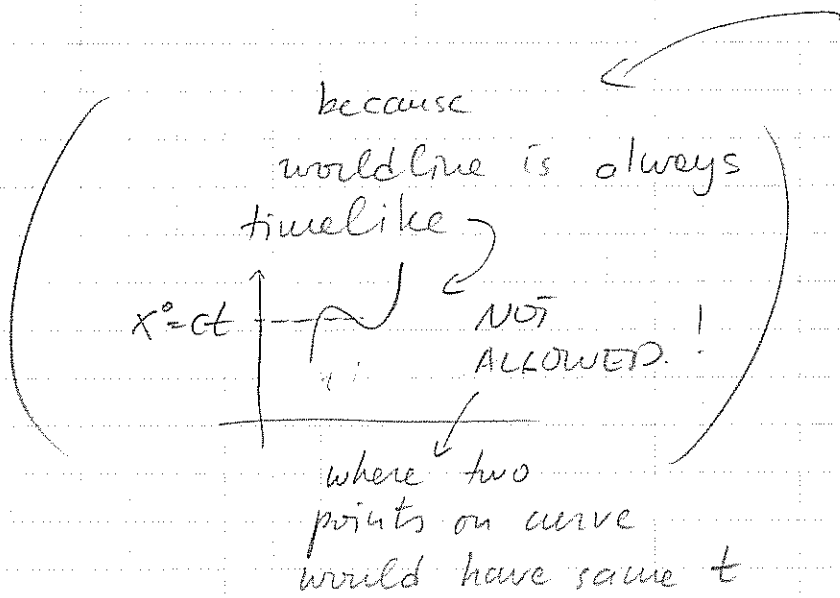 because
worldline is always
timelike
x⁰=ct
NOT
ALLOWED. !
where two
points on curve
would have same t